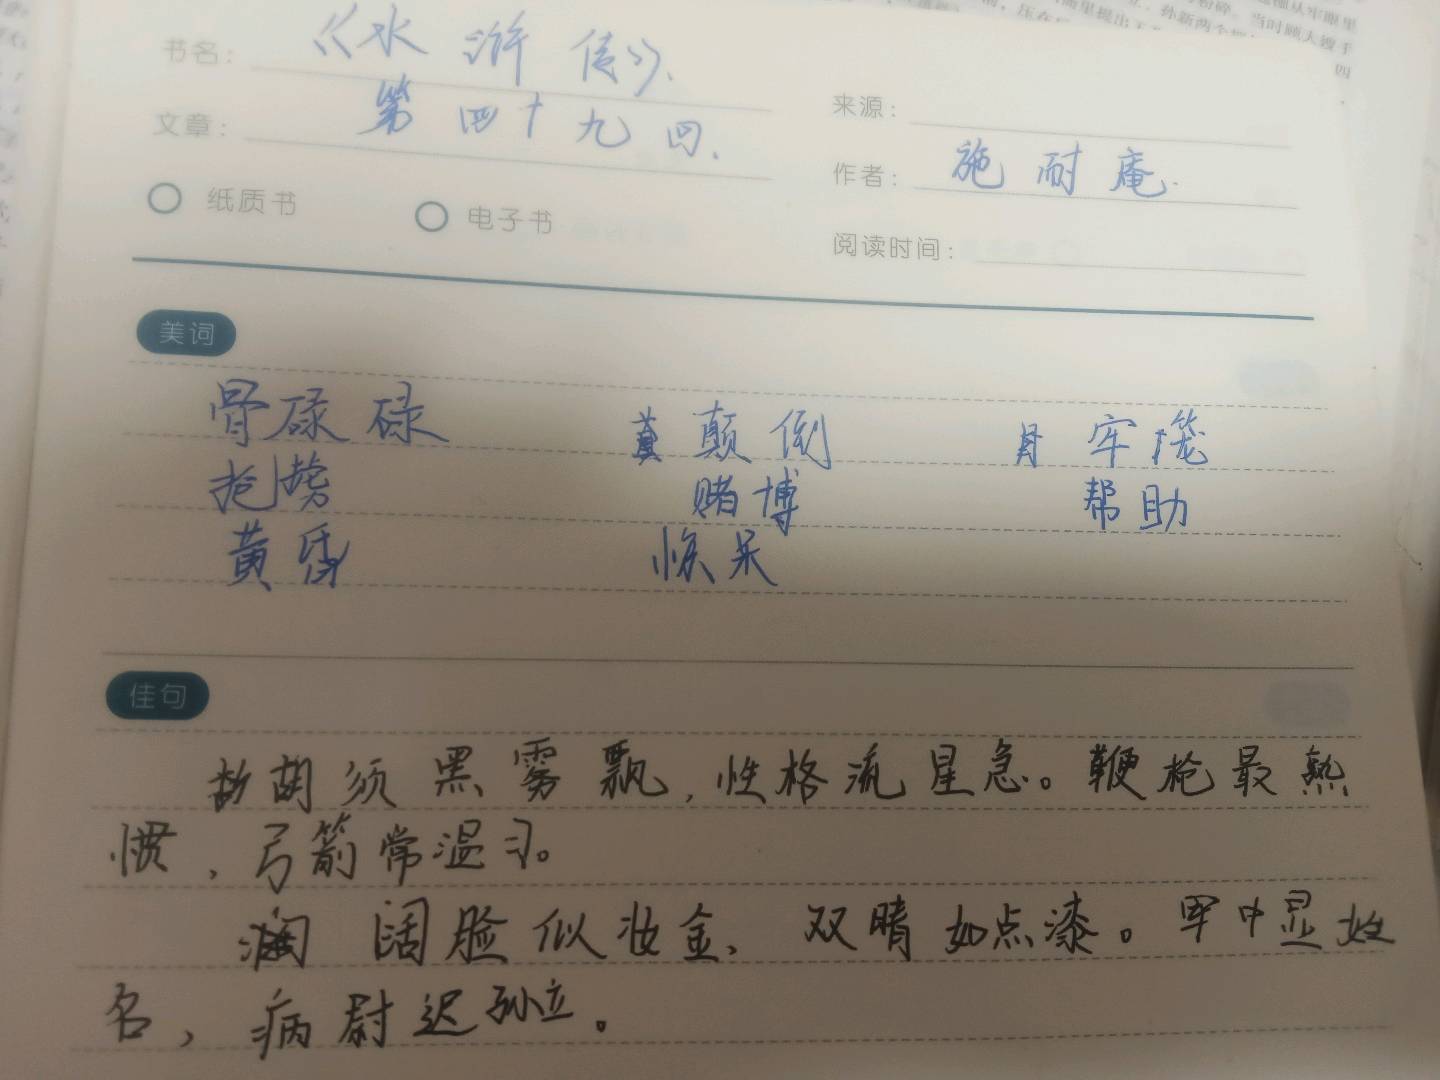 书名：《水浒传》.
文章：第四十九回.
来源：
作者：施耐庵.
纸质书 电子书
阅读时间：
美词
骨碌碌 颠倒 牢笼
抢掳 赌博 帮助
黄昏 惊呆
佳句
胡须黑雾飘，性格流星急。鞭枪最熟
惯，弓箭常温习。
阔脸似妆金，双睛如点漆。军中显姓
名，病尉迟孙立。